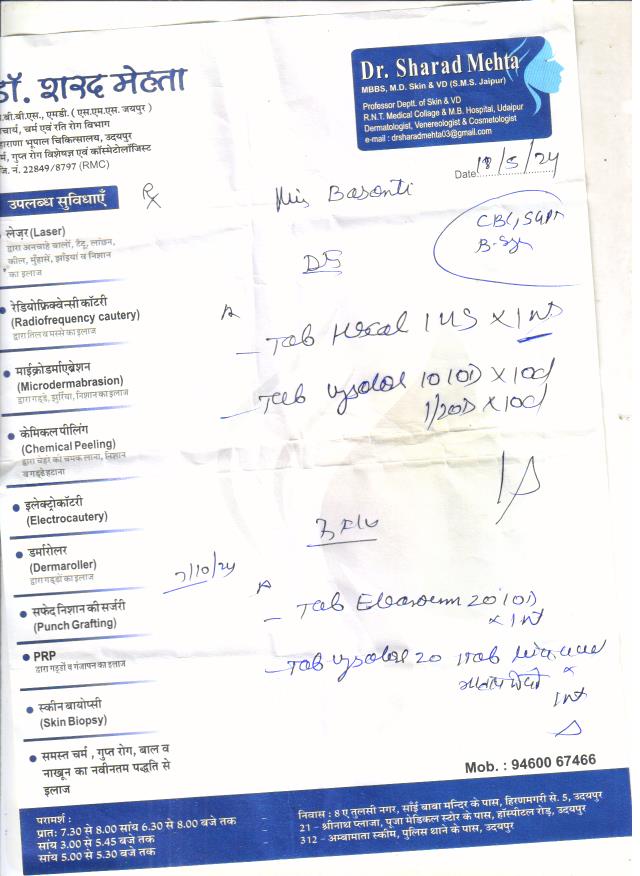 डॉ. शरद मेहता
एम.बी.बी.एस., एमडी. ( एस.एम.एस. जयपुर )
आचार्य, चर्म एवं रति रोग विभाग
महाराणा भूपाल चिकित्सालय, उदयपुर
चर्म, गुप्त रोग विशेषज्ञ एवं कॉस्मेटोलॉजिस्ट
रजि. नं. 22849/8797 (RMC)
Dr. Sharad Mehta
MBBS, M.D. Skin & VD (S.M.S. Jaipur)
Professor Deptt. of Skin & VD
R.N.T. Medical Collage & M.B. Hospital, Udaipur
Dermatologist, Venereologist & Cosmetologist
e-mail : drsharadmehta03@gmail.com
Date 18/5/24
उपलब्ध सुविधाएँ
Rx
Miss Basanti
CBC, SGPT
लेज़र (Laser)
द्वारा अनचाहे बालों, टैटू, लांछन,
कील, मुँहासे, झाँइयां व निशान
का इलाज
रेडियोफ्रिक्वेन्सी कॉटरी
(Radiofrequency cautery)
द्वारा तिल व मस्से का इलाज
- Tab 1 HS x 1 nt
माईक्रोडर्माएब्रेशन
(Microdermabrasion)
द्वारा गड्ढे, झुर्रियां, निशान का इलाज
- Tab 10 1OD x 10d
1/2OD x 10d
केमिकल पीलिंग
(Chemical Peeling)
द्वारा चेहरे का चमक लाना, निशान
व गड्ढे हटाना
इलेक्ट्रोकॉटरी
(Electrocautery)
डर्मारोलर
(Dermaroller)
द्वारा गड्ढों का इलाज
7/10/24
सफेद निशान की सर्जरी
(Punch Grafting)
- Tab 20 1OD
x 1 nt
PRP
द्वारा गड्ढों व गंजापन का इलाज
- Tab 20 1tab
1 nt
स्कीन बायोप्सी
(Skin Biopsy)
समस्त चर्म , गुप्त रोग, बाल व
नाखून का नवीनतम पद्धति से
इलाज
Mob. : 94600 67466
परामर्श :
प्रातः 7.30 से 8.00 सांय 6.30 से 8.00 बजे तक
सांय 3.00 से 5.45 बजे तक
सांय 5.00 से 5.30 बजे तक
निवास : 8 ए तुलसी नगर, साँई बाबा मन्दिर के पास, हिरणमगरी से. 5, उदयपुर
21 - श्रीनाथ प्लाजा, पूजा मेडिकल स्टोर के पास, हॉस्पीटल रोड़, उदयपुर
312 - अम्बामाता स्कीम, पुलिस थाने के पास, उदयपुर